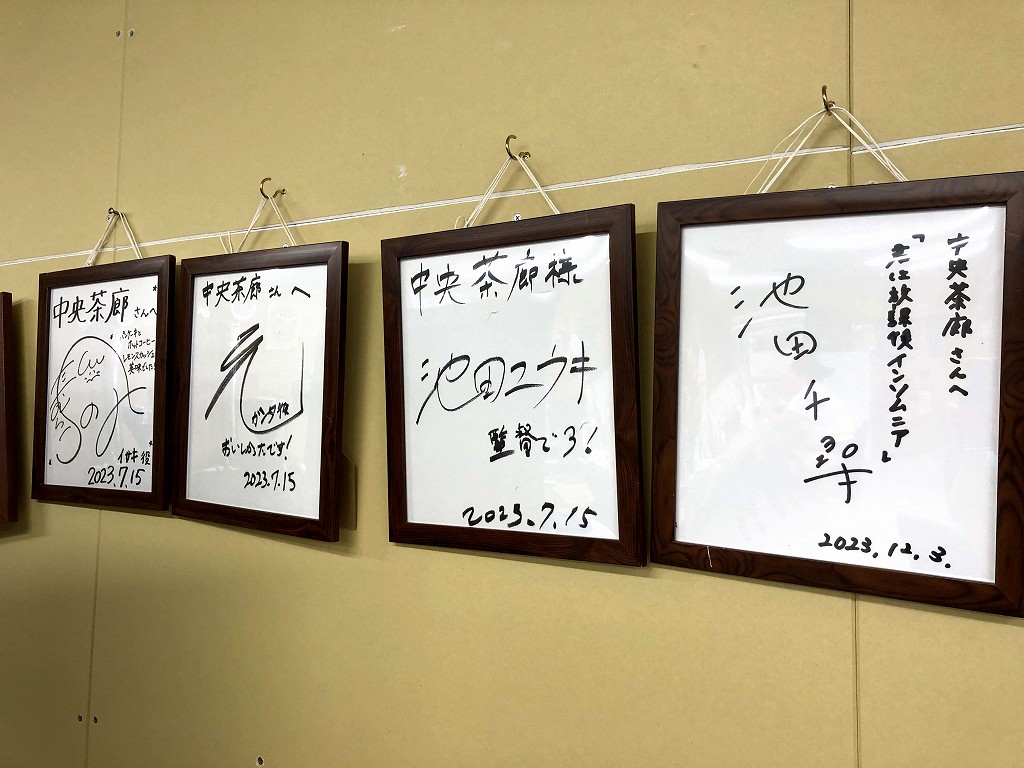 中央茶廊さんへ
パンケーキと
ホットコーヒー
レモンスカッシュ
美味でした!
イサキ役
2023.7.15
中央茶廊さんへ
元
ガンタ役
おいしかったです!
2023.7.15
中央茶廊様
池田ユウキ
監督です!
2023.7.15
中央茶廊さんへ
「君は放課後インソムニア」
池田千尋
2023.12.3.